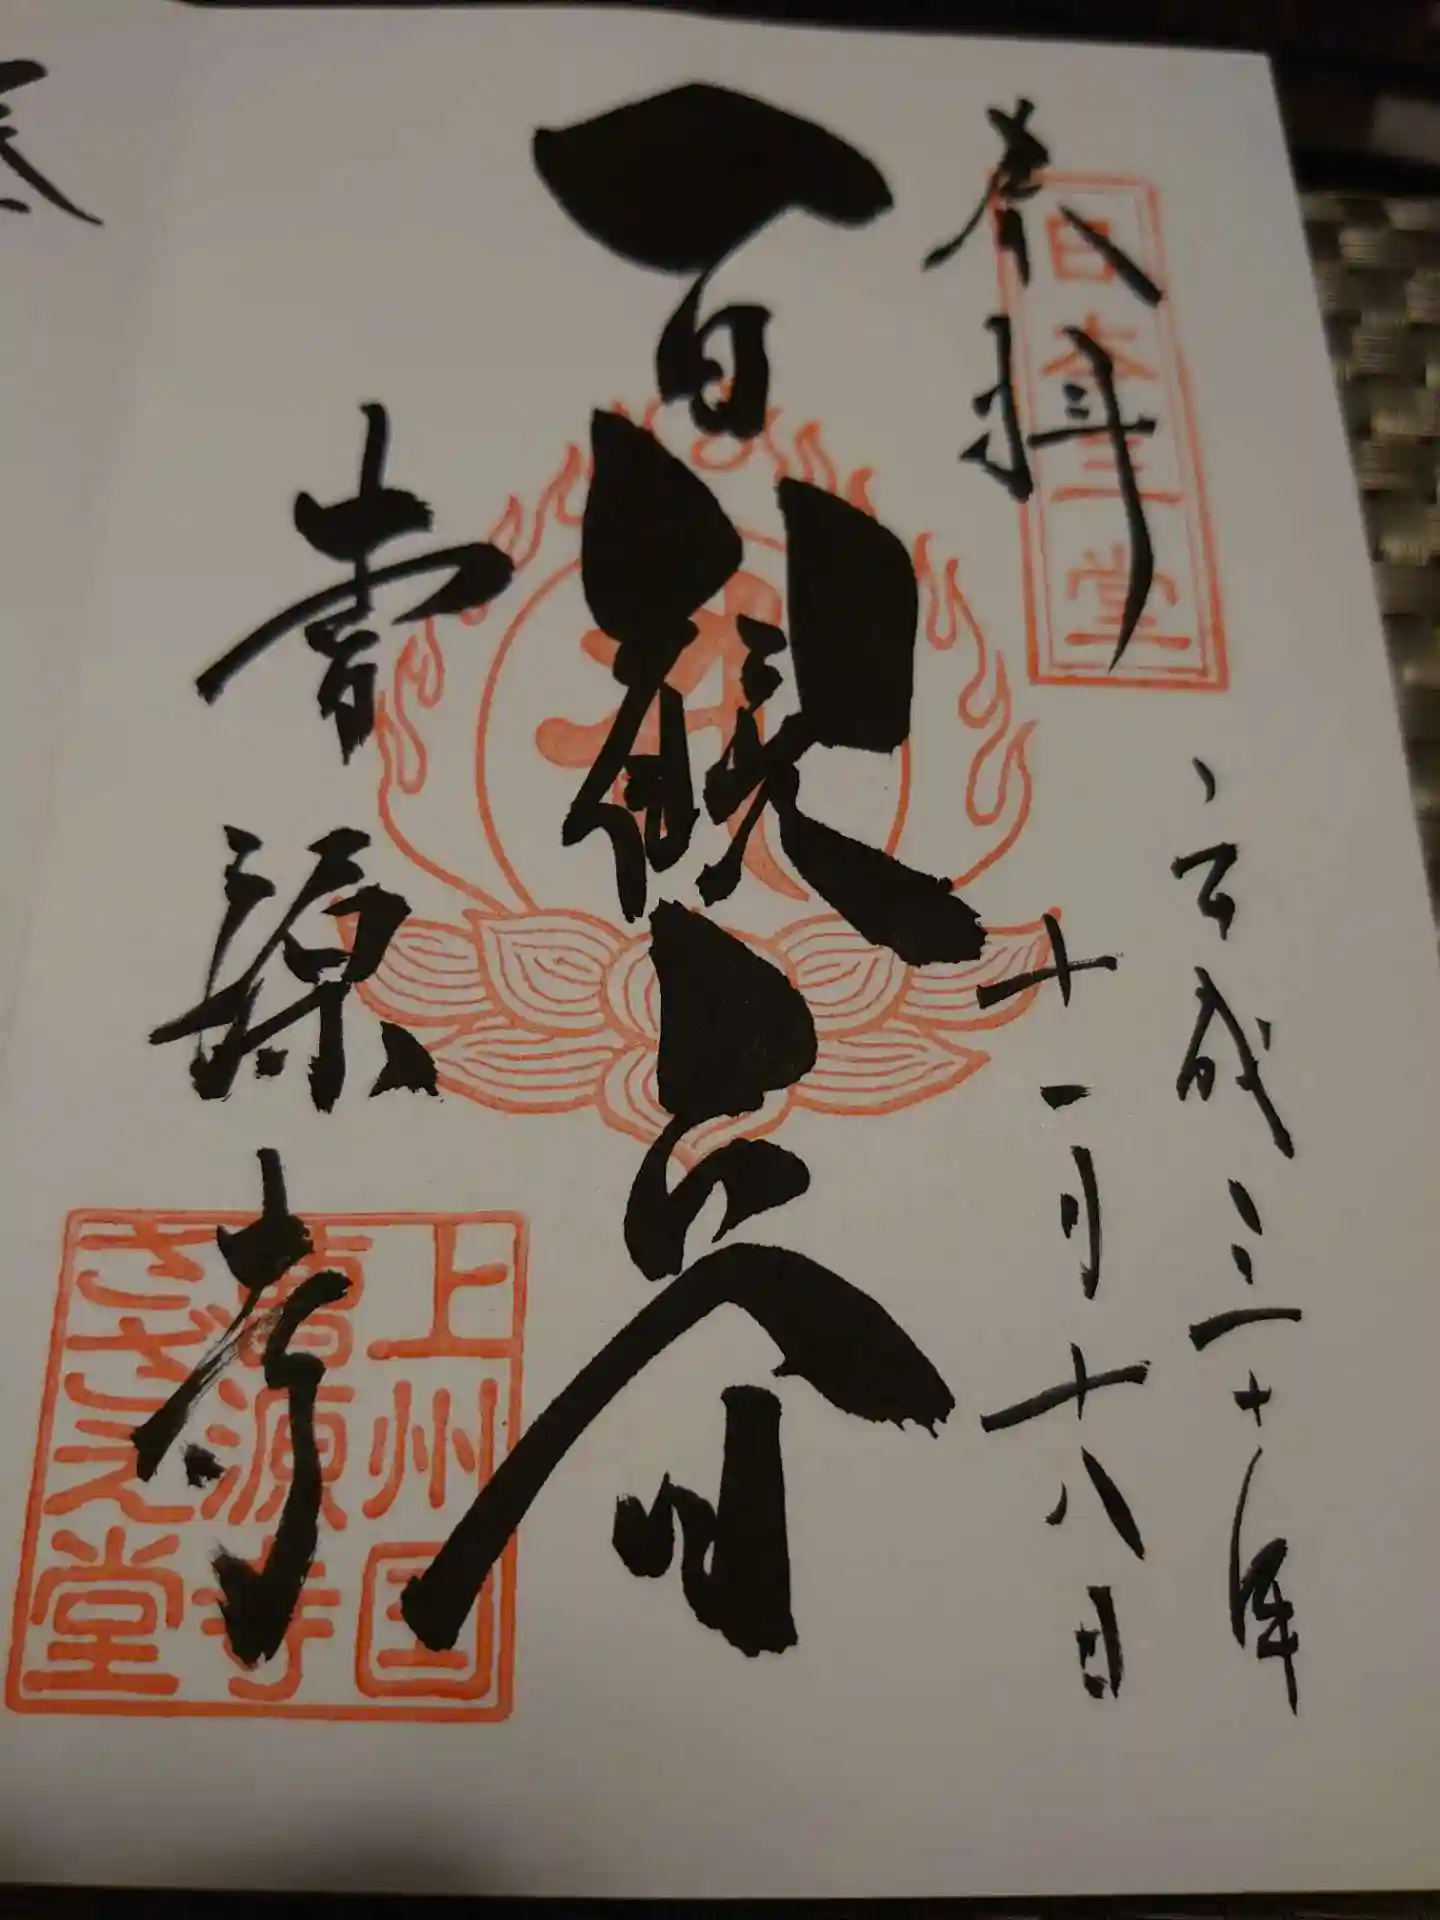 奉拝
日本三堂
平成三十年
十一月十八日
百観音
曹源寺
上州国
曹源寺
さざえ堂